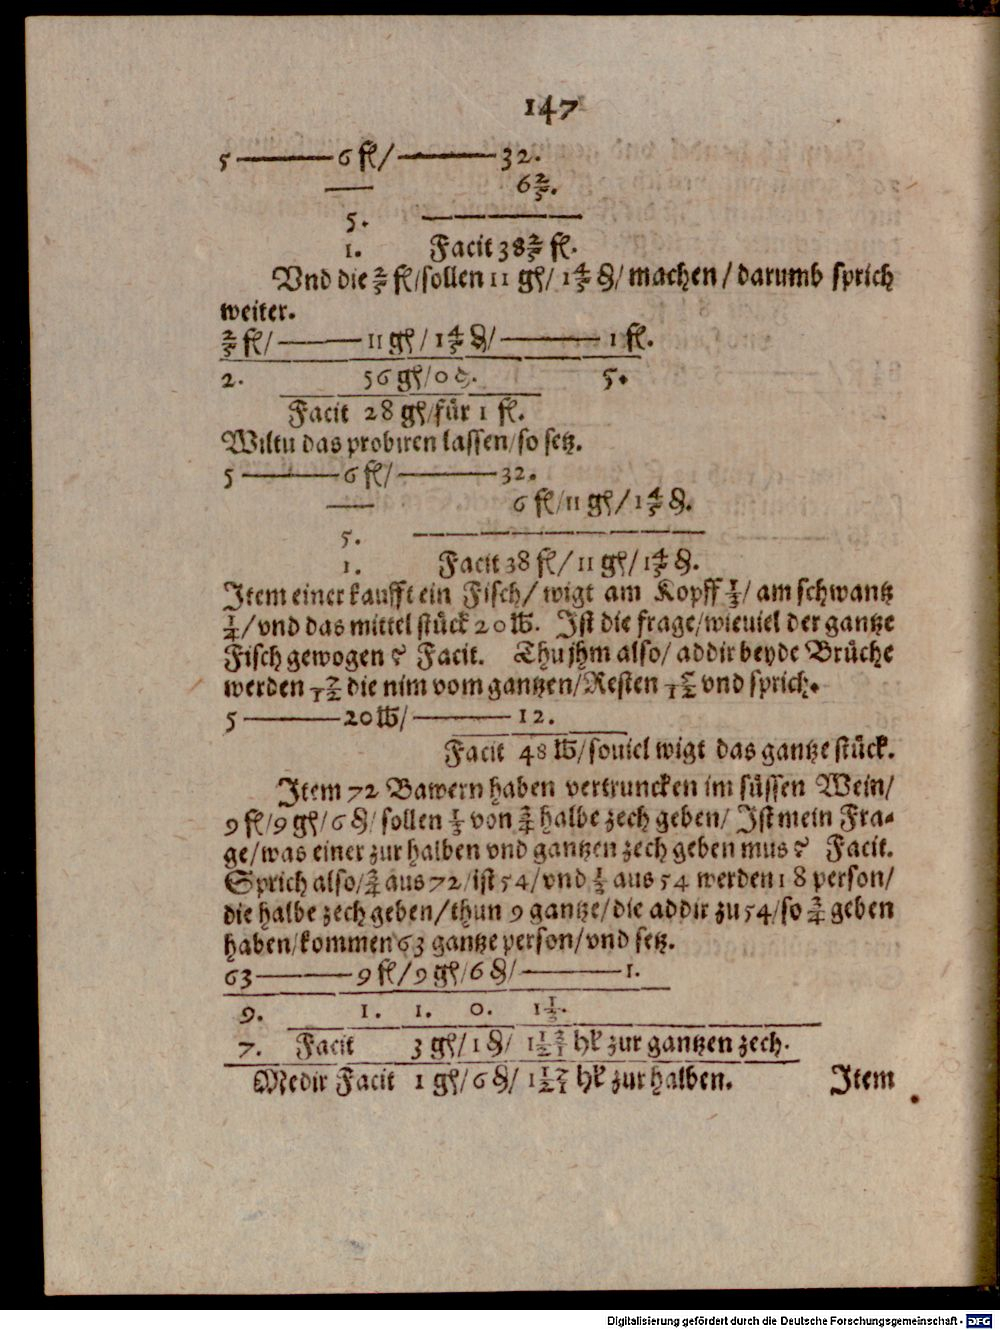 147
5 ——— 6 fl/ ——— 32.
6 2/5.
5.
1. Facit 38 2/5 fl.
Vnd die 2/5 fl/sollen 11 gl/ 1 4/5 ₰/ machen / darumb sprich
weiter.
2/5 fl/ ——— 11 gl / 1 4/5 ₰/ ——— 1 fl.
2. 56 gl/0 ₰. 5.
Facit 28 gl/für 1 fl.
Wiltu das probiren lassen/so setz.
5 ——— 6 fl/ ——— 32.
6 fl/11 gl/ 1 4/5 ₰.
5.
1. Facit 38 fl/ 11 gl/ 1 4/5 ₰.
Item einer kaufft ein Fisch/ wigt am Kopff 1/3/ am schwantz
1/4/ vnd das mittel stück 20 ℔. Ist die frage/wieuiel der gantze
Fisch gewogen? Facit. Thu jhm also/ addir beyde Brüche
werden 7/12 die nim vom gantzen/Resten 5/12 vnd sprich.
5 ——— 20 ℔/ ——— 12.
Facit 48 ℔/souiel wigt das gantze stück.
Item 72 Bawern haben vertruncken im süssen Wein/
9 fl/9 gl/ 6 ₰/ sollen 1/3 von 3/4 halbe zech geben/ Ist mein Fra-
ge/was einer zur halben vnd gantzen zech geben mus? Facit.
Sprich also/ 3/4 aus 72/ist 54/vnd 1/3 aus 54 werden 18 person/
die halbe zech geben/thun 9 gantze/die addir zu 54/so 3/4 geben
haben/kommen 63 gantze person/vnd setz.
63 ——— 9 fl/9 gl/6 ₰/ ——— 1.
9. 1. 1. 0. 1 1/3.
7. Facit 3 gl/ 1 ₰/ 1 13/21 hl zur gantzen zech.
Medir Facit 1 gl/ 6 ₰/ 1 17/21 hl zur halben. Item
Digitalisierung gefördert durch die Deutsche Forschungsgemeinschaft - DFG